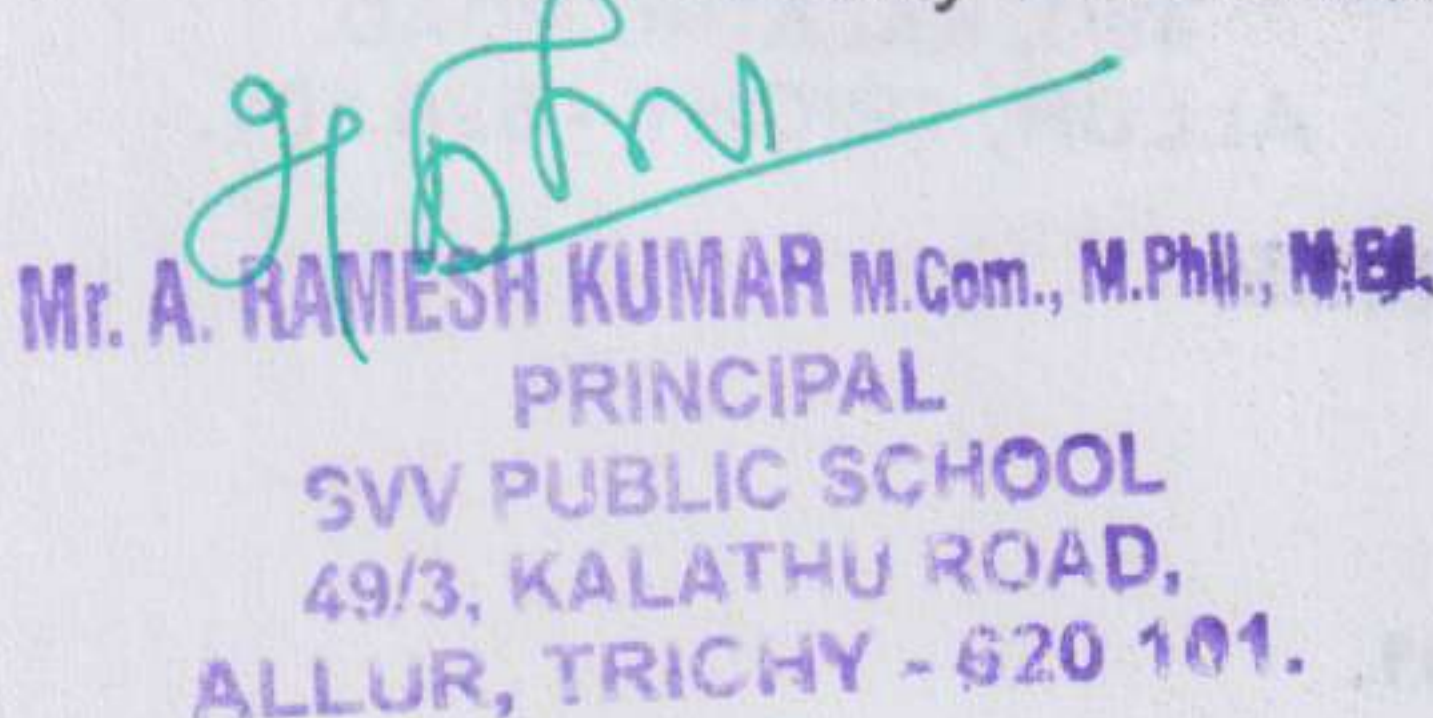 Mr. A. RAMESH KUMAR M.Com., M.Phil.,
PRINCIPAL
SVV PUBLIC SCHOOL
49/3, KALATHU ROAD,
ALLUR, TRICHY - 620 101.